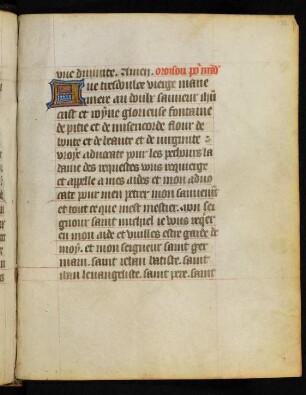 vne diuinite. Amen. oroison pour
Aue tresdoulce vierge marie
mere au doulx sauueur ihu
crist et royne glorieuse fontaine
de pitie et de misericorde flour de
bonte et de beaute et de virginite
vraye aduocate pour les pecheurs la
dame des requestes vous requierge
et appelle a mes aides et mon aduo
cate pour men prier mon sauueur
et tout ce que mest mestier. Mon sei
gnour saint michiel ie vous reqier
en mon aide et vuilles estre garde de
moy. et mon seigneur saint ger
main. saint iehan batiste. saint
iehan leuangeliste. saint pere. saint